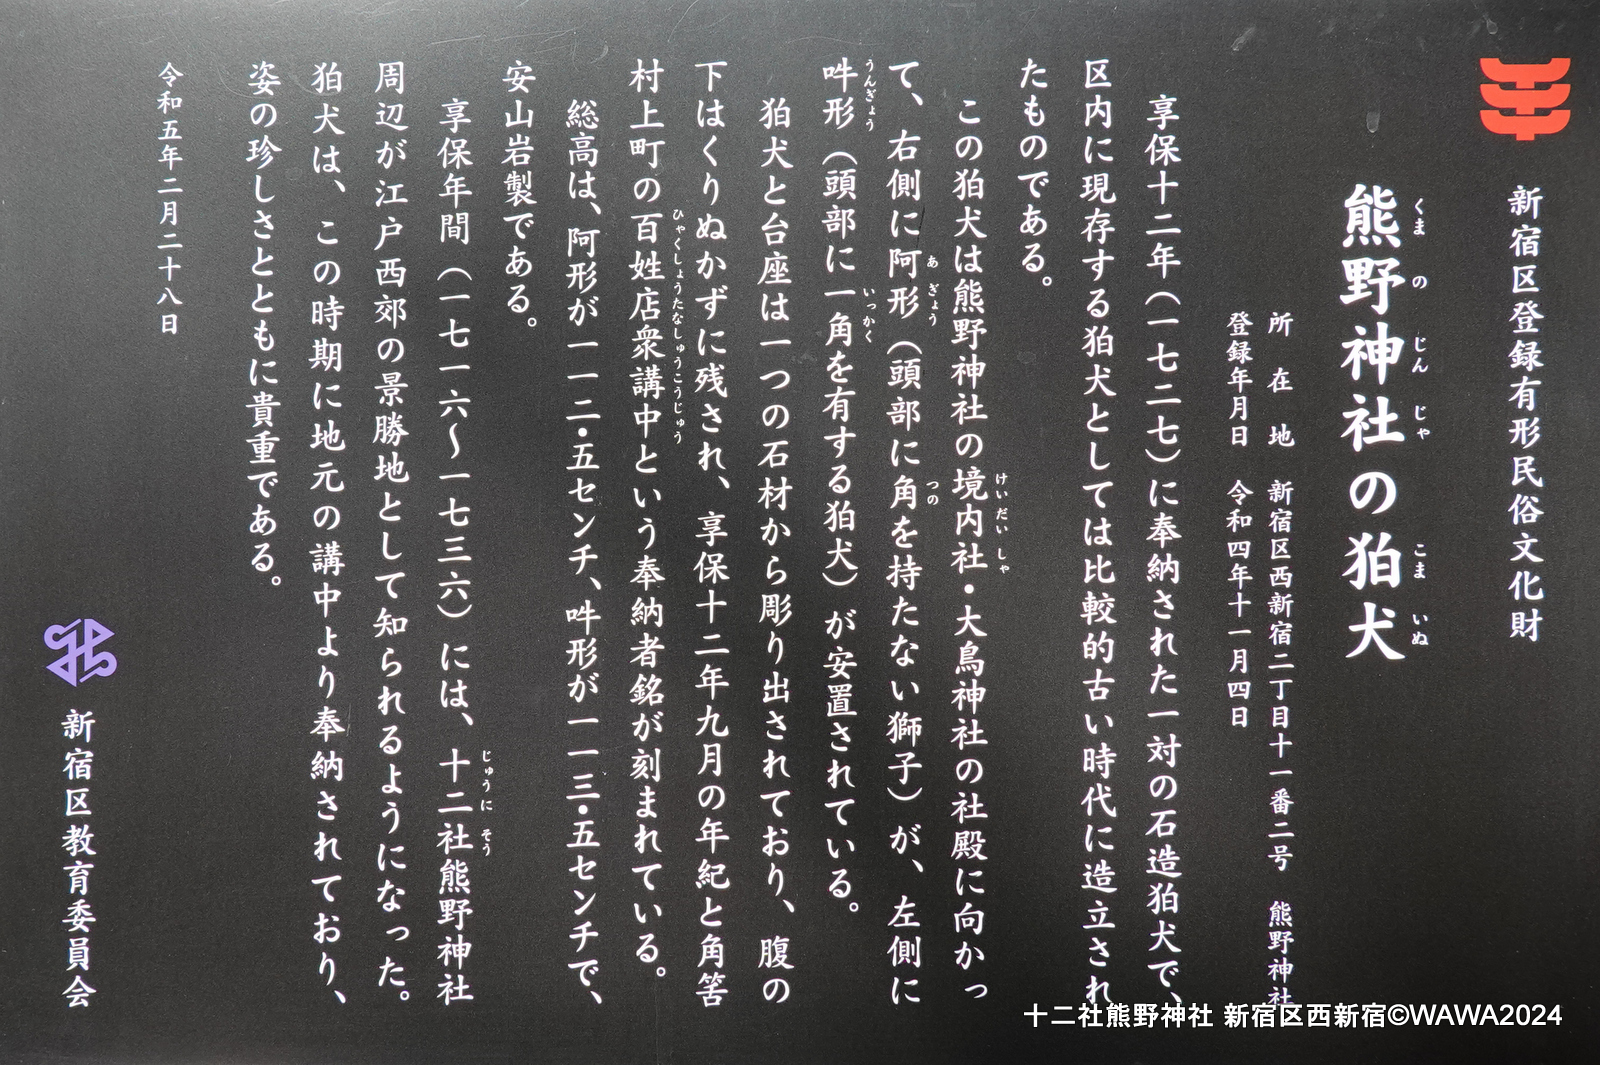 新宿区登録有形民俗文化財
熊野神社の狛犬
くま の じん じゃ こま いぬ
所在地 新宿区西新宿二丁目十一番二号 熊野神社
登録年月日 令和四年十一月四日
享保十二年（一七二七）に奉納された一対の石造狛犬で、
区内に現存する狛犬としては比較的古い時代に造立され
たものである。
この狛犬は熊野神社の境内社・大鳥神社の社殿に向かっ
けいだいしゃ
て、右側に阿形（頭部に角を持たない獅子）が、左側に
あ ぎょう つの
吽形（頭部に一角を有する狛犬）が安置されている。
うんぎょう いっかく
狛犬と台座は一つの石材から彫り出されており、腹の
下はくりぬかずに残され、享保十二年九月の年紀と角筈
村上町の百姓店衆講中という奉納者銘が刻まれている。
ひゃくしょうたなしゅうこうじゅう
総高は、阿形が一一二・五センチ、吽形が一一三・五センチで、
安山岩製である。
享保年間（一七一六～一七三六）には、十二社熊野神社
じゅうに そう
周辺が江戸西郊の景勝地として知られるようになった。
狛犬は、この時期に地元の講中より奉納されており、
姿の珍しさとともに貴重である。
令和五年二月二十八日
新宿区教育委員会
十二社熊野神社 新宿区西新宿©WAWA2024